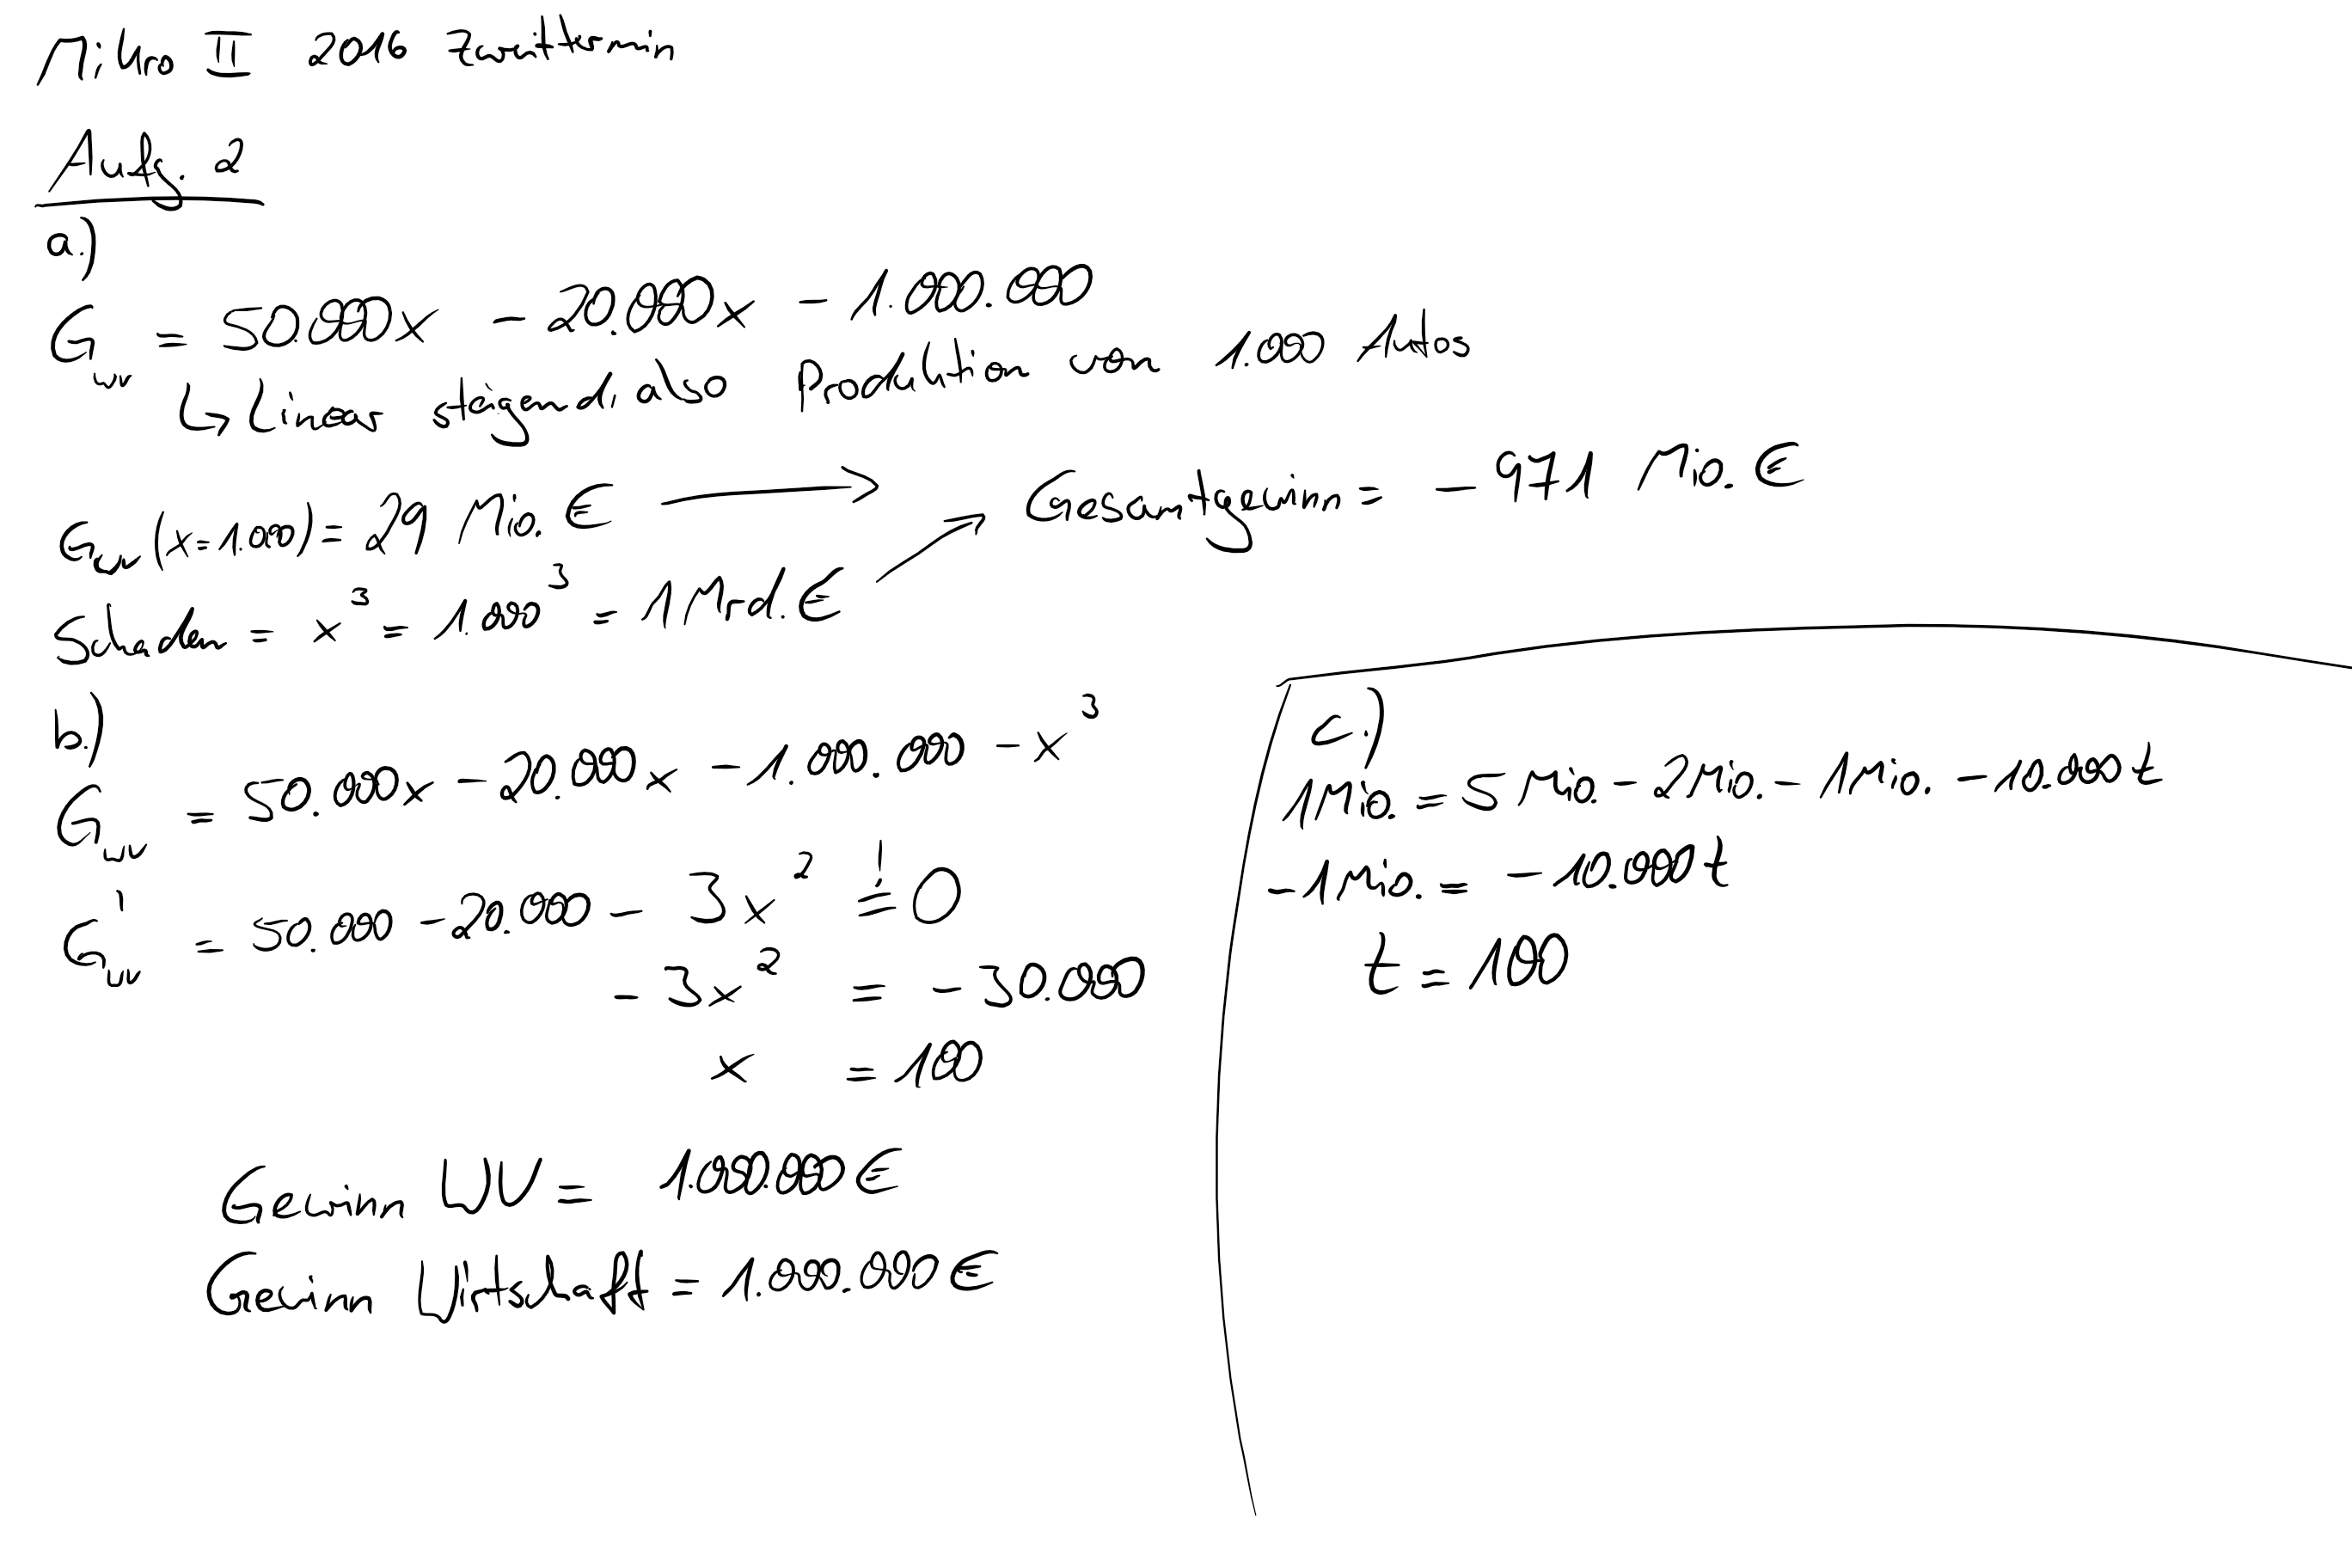 Mikro II 2016 Zweittermin
Aufg. 2
a.)
G_WV = 50.000x - 20.000x - 1.000.000
↳ Linear steigend, also Produktion von 1.000 Autos
G_WV (x=1.000) = 29 Mio. € → Gesamtgewinn = - 971 Mio. €
Schaden = x³ = 1.000³ = 1 Mrd. € ↗
b.)
G_WV = 50.000x - 20.000x - 1.000.000 - x³
G'_WV = 50.000 - 20.000 - 3x² =! 0
- 3x² = - 30.000
x = 100
Gewinn WV = 1.000.000 €
Gewinn Wirtschaft = 1.000.000 €
c.)
1 Mio. = 5 Mio. - 2 Mio. - 1 Mio. - 10.000 t
- 1 Mio. = - 10.000 t
t = 100